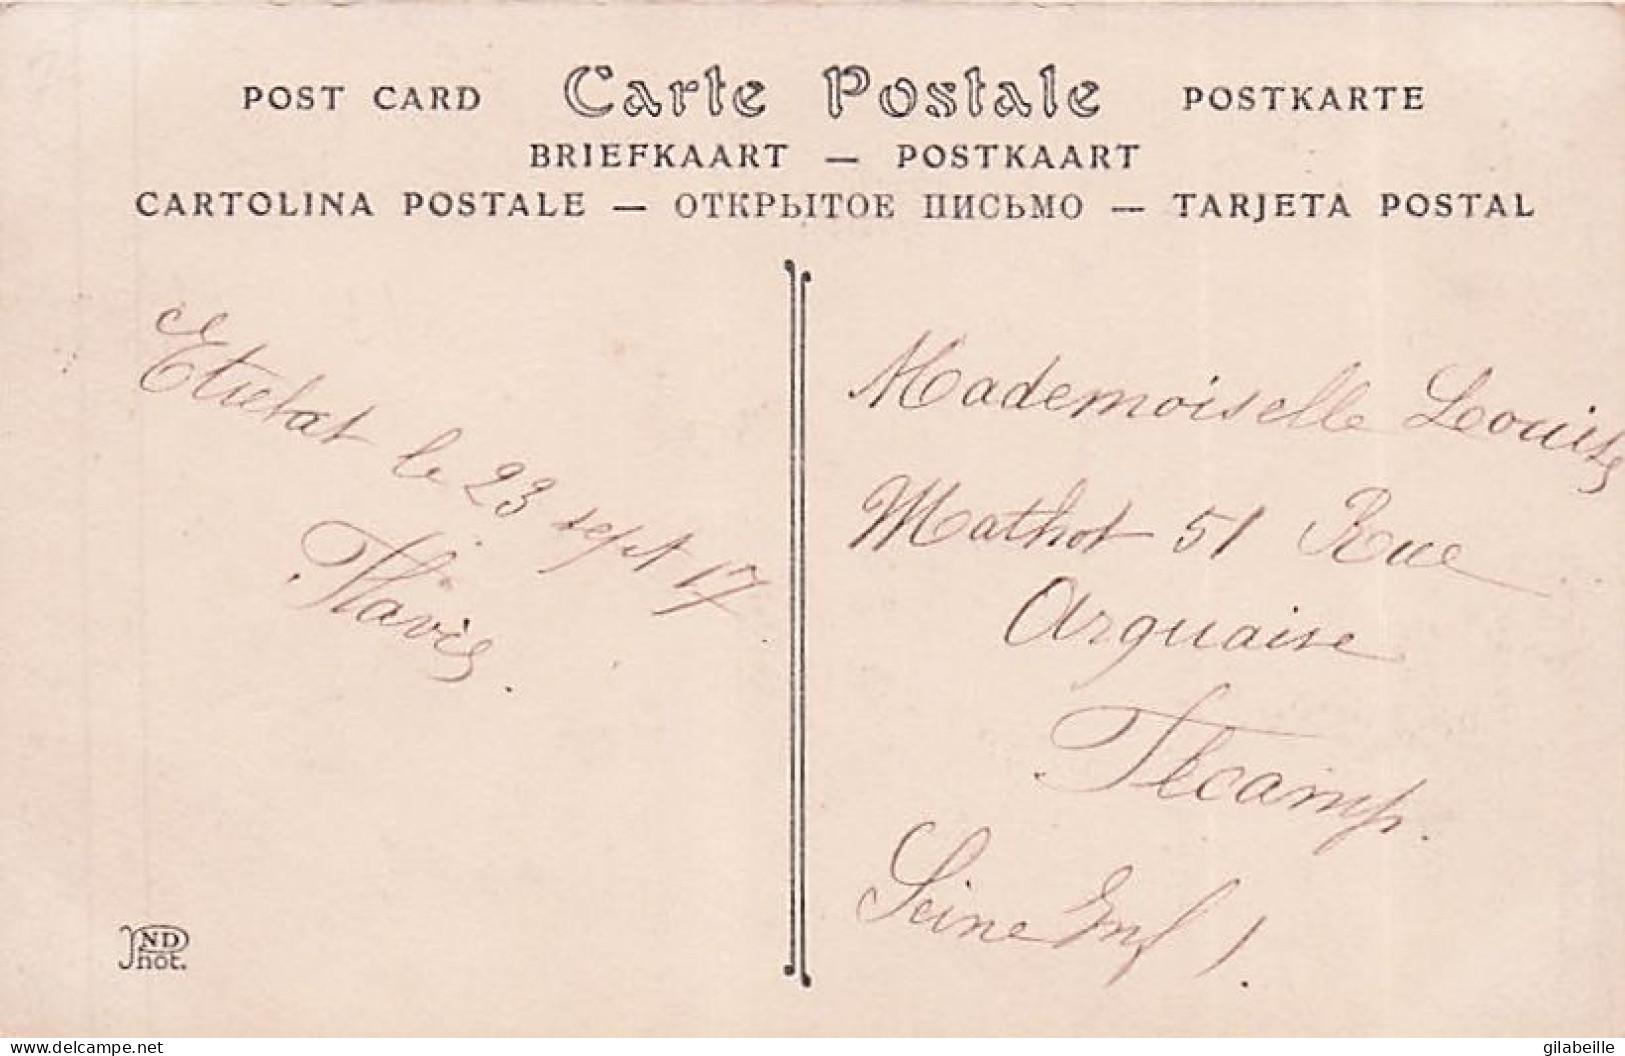 POST CARD Carte Postale POSTKARTE
BRIEFKAART — POSTKAART
CARTOLINA POSTALE — ОТКРЫТОЕ ПИСЬМО — TARJETA POSTAL
Etretat le 23 sept 17
Flavie.
Mademoiselle Louise
Mathot 51 Rue
Arquaise
Fecamp.
Seine Inf !
ND
Phot.
delcampe.net
gilabeille